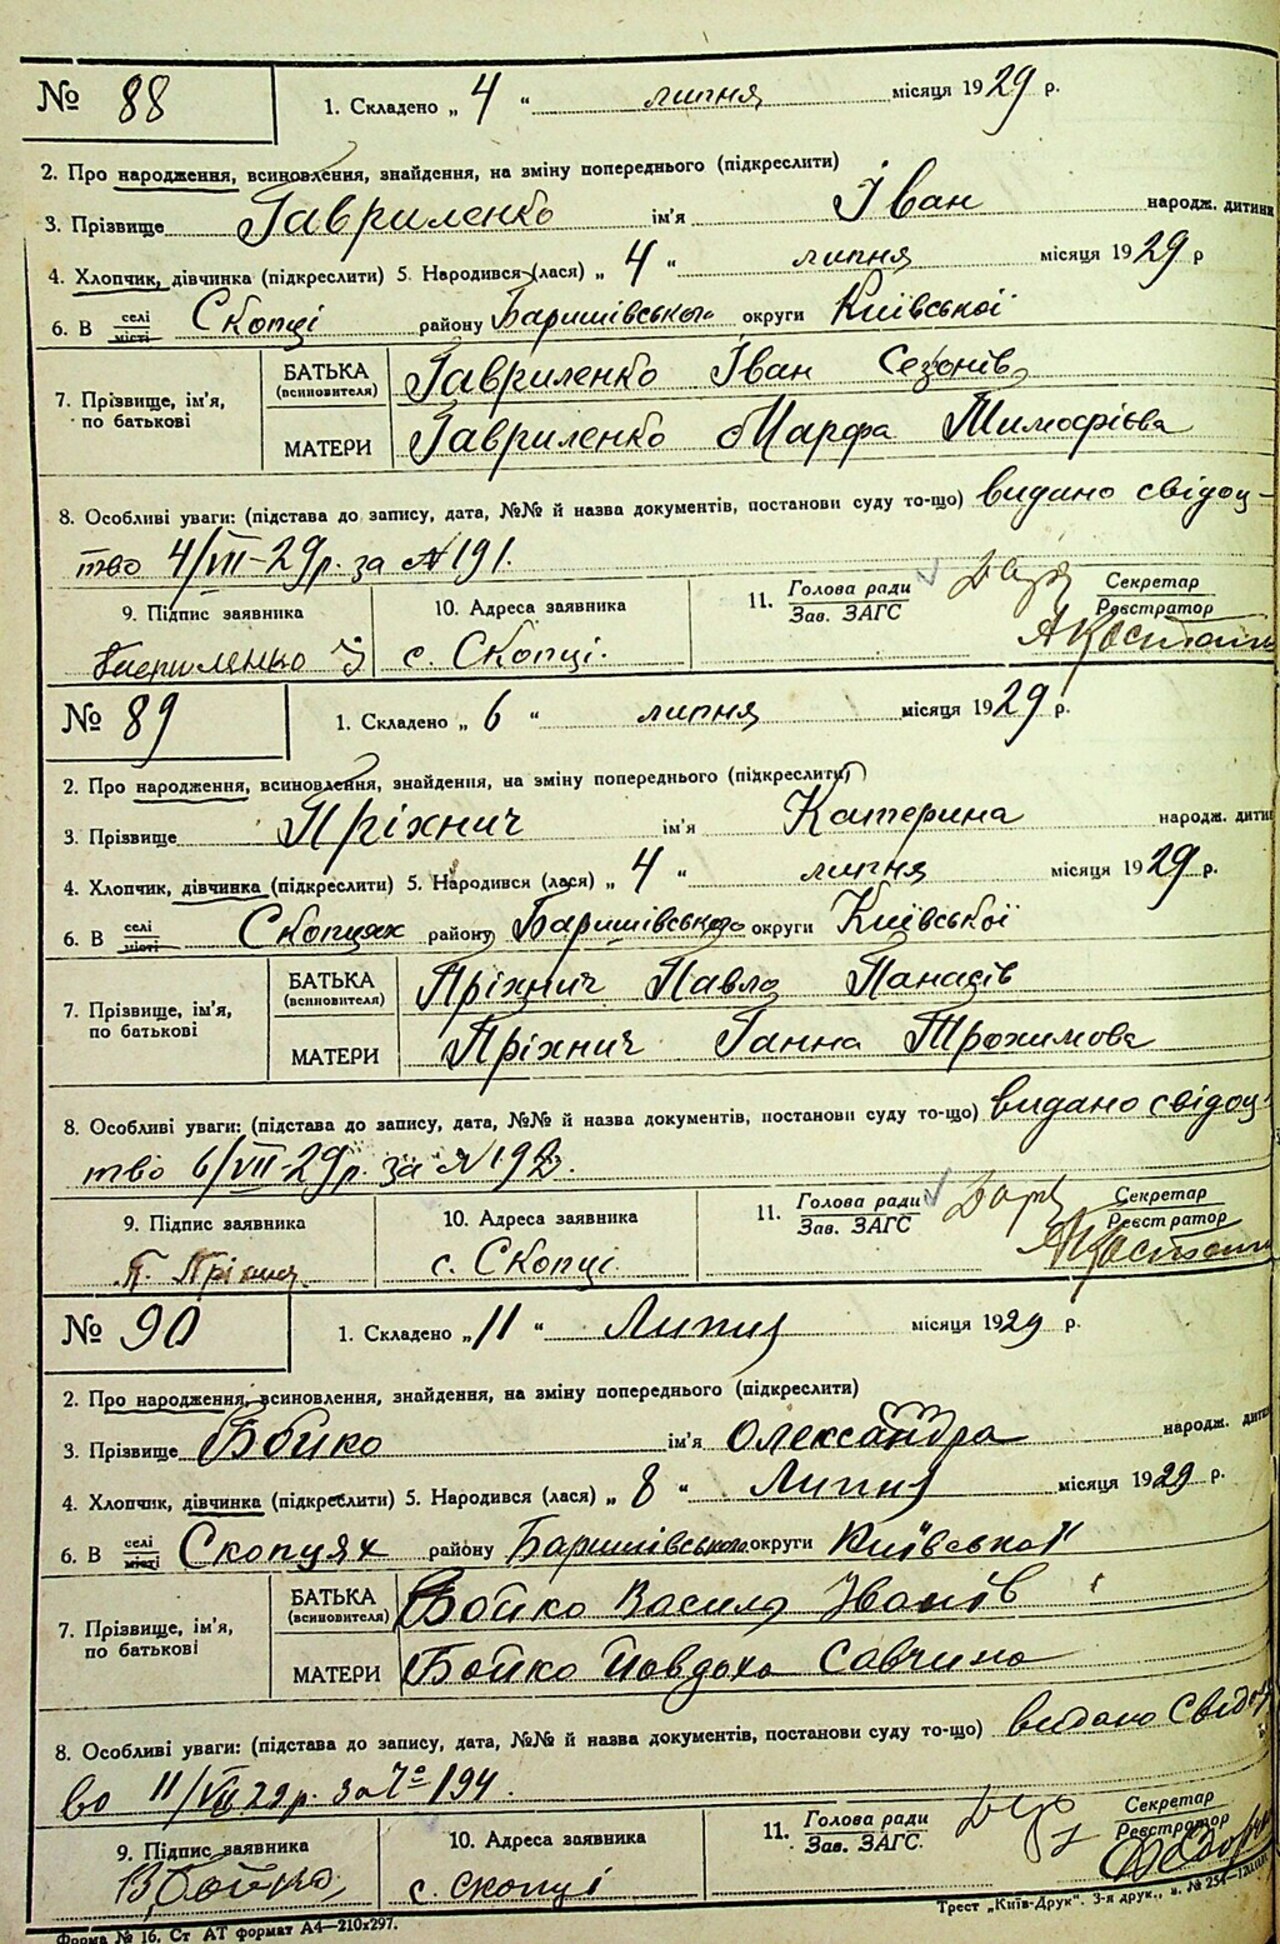 № 88
1. Складено „ 4 “ липня місяця 1929 р.
2. Про народження, всиновлення, знайдення, на зміну попереднього (підкреслити)
3. Прізвище Гавриленко ім'я Іван народж. дитини
4. Хлопчик, дівчинка (підкреслити) 5. Народився (лася) „ 4 “ липня місяця 1929 р
6. В селі місті Скопці району Баришівського округи Київської
7. Прізвище, ім'я, по батькові
БАТЬКА (всиновителя) Гавриленко Іван Сезонів
МАТЕРИ Гавриленко Марфа Тимофієва
8. Особливі уваги: (підстава до запису, дата, №№ й назва документів, постанови суду то-що) видано свідоц-
тво 4/VII-29р. за № 191.
9. Підпис заявника 10. Адреса заявника 11. Голова ради Зав. ЗАГС Секретар Реєстратор
Гавриленко І с. Скопці.
№ 89
1. Складено „ 6 “ липня місяця 1929 р.
2. Про народження, всиновлення, знайдення, на зміну попереднього (підкреслити)
3. Прізвище Пріхнич ім'я Катерина народж. дити
4. Хлопчик, дівчинка (підкреслити) 5. Народився (лася) „ 4 “ липня місяця 1929 р.
6. В селі місті Скопцях району Баришівського округи Київської
7. Прізвище, ім'я, по батькові
БАТЬКА (всиновителя) Пріхнич Павло Панасів
МАТЕРИ Пріхнич Ганна Трохимова
8. Особливі уваги: (підстава до запису, дата, №№ й назва документів, постанови суду то-що) видано свідоц-
тво 6/VII-29р. за № 192.
9. Підпис заявника 10. Адреса заявника 11. Голова ради Зав. ЗАГС Секретар Реєстратор
П. с. Скопці.
№ 90
1. Складено „ 11 “ Липня місяця 1929 р.
2. Про народження, всиновлення, знайдення, на зміну попереднього (підкреслити)
3. Прізвище Бойко ім'я Олександра народж. дити
4. Хлопчик, дівчинка (підкреслити) 5. Народився (лася) „ 8 “ Липня місяця 1929 р.
6. В селі місті Скопцях району Баришівського округи Київської
7. Прізвище, ім'я, по батькові
БАТЬКА (всиновителя) Бойко Василь Іванів
МАТЕРИ Бойко Йовдоха Савчина
8. Особливі уваги: (підстава до запису, дата, №№ й назва документів, постанови суду то-що) видано Свідоц
во 11/VII 29р. за № 194.
9. Підпис заявника 10. Адреса заявника 11. Голова ради Зав. ЗАГС. Секретар Реєстратор
В. Бойко с. Скопці
Форма № 16. Ст АТ формат А4—210х297. Трест „Київ-Друк“. 3-я друк., з. № 254—